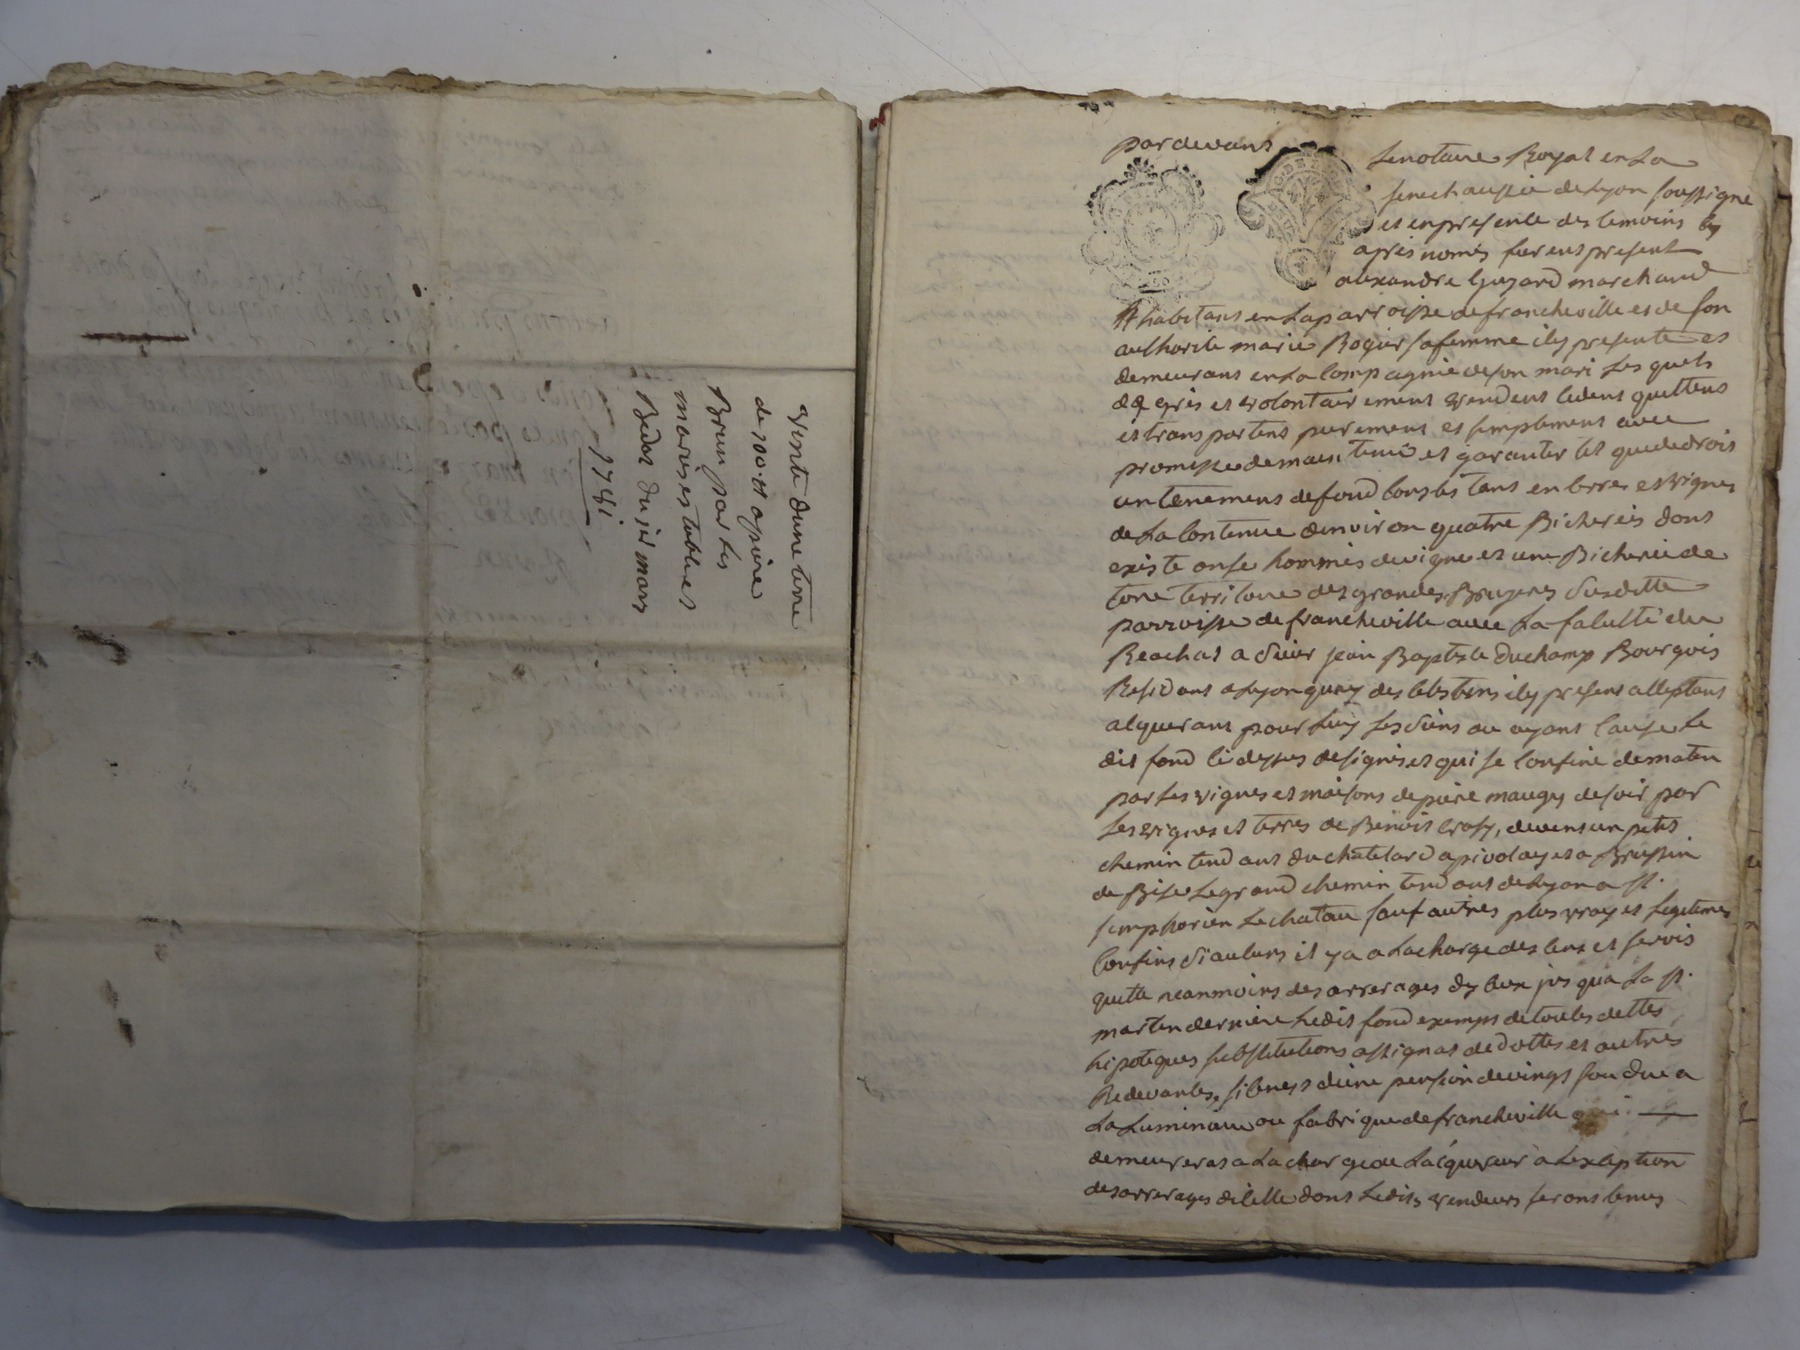 Vente dune terre
de 100 ₶ a pierre
Brun par les
mariés
Bedor du jer mars
1781
par devant
Le notaire Royal en La
senechaussée de Lyon soussigné
et en presence des temoins
apres només furent present
alexandre guyard marchand
habitant en La parroisse de francheville et de son
authorite marie Rogier sa femme icy presente et
demeurant en La compagnie de son mari Les quels
de gres et volontairement vendent cedent quittent
et transportent purement et simplement avec
promesse de maintenir et garantir tel que de droit
un tenement de fond consistant en terres et vignes
de La contenue denviron quatre Bicherées dont
existe onse hommées de vigne et une Bicherée de
terre territoire des grandes Bruyeres susditte
parroisse de francheville avec La faculté du
Reachat a sieur jean Baptiste Duchamp Bourgois
Residant a Lyon quay des celestins icy present acceptant
acquerant pour Luy Les siens ou ayant cause Le
dit fond ci dessus designé et qui se confine de maten
par Les vignes et maisons de piere mauguy de soir par
Les vignes et terres de Benoit, de vent un petit
chemin tendant du chatelard a pivolay et a Brussin
de Bise Le grand chemin tendant de Lyon a st.
simphorien Le chatau sauf autres plus vray et Legitimes
confins si aucuns il y a a La charge des cens et servis
quitte neanmoins des arrerages diceux jusqua La st.
marten derniere Ledit fond exempt de toutes dettes
hipoteques substitutions assignat de dottes et autres
Redevances, si ce nest d'une pension de vingt sou due a
La Luminaire ou fabrique de francheville qui
demeurerat a La charge de Lacquereur a Lexception
des arrerages dicelle dont Ledits vendeurs seront tenus